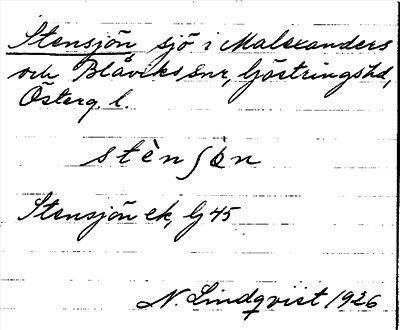 Stensjön, sjö i Malexanders
och Blåviks snr, Göstrings hd,
Österg. l.
stènʃön
Stensjön ek, Gj 45
N. Lindqvist 1926